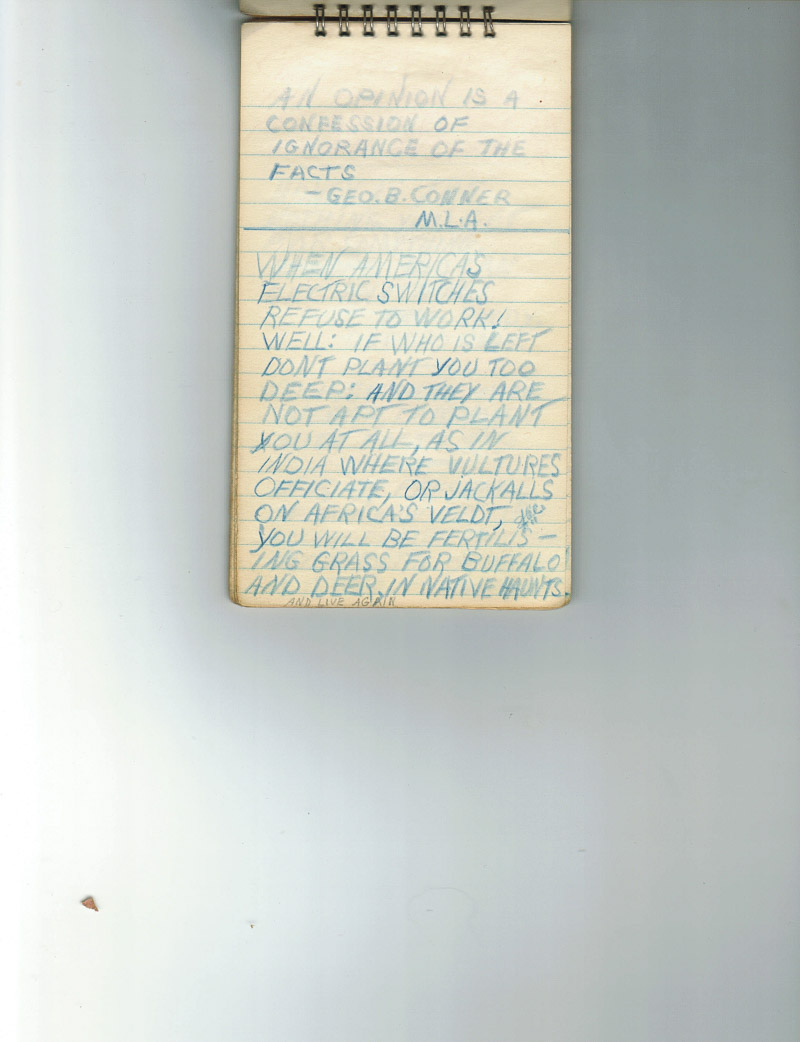 AN OPINION IS A
CONFESSION OF
IGNORANCE OF THE
FACTS
– GEO. B. CONNER
M.L.A.
WHEN AMERICAS
ELECTRIC SWITCHES
REFUSE TO WORK!
WELL: IF WHO IS LEFT
DONT PLANT YOU TOO
DEEP: AND THEY ARE
NOT APT TO PLANT
YOU AT ALL, AS IN
INDIA WHERE VULTURES
OFFICIATE, OR JACKALLS
ON AFRICA'S VELDT,
YOU WILL BE FERTILIS –
ING GRASS FOR BUFFALO
AND DEER, IN NATIVE HAUNTS.
AND LIVE AGAIN